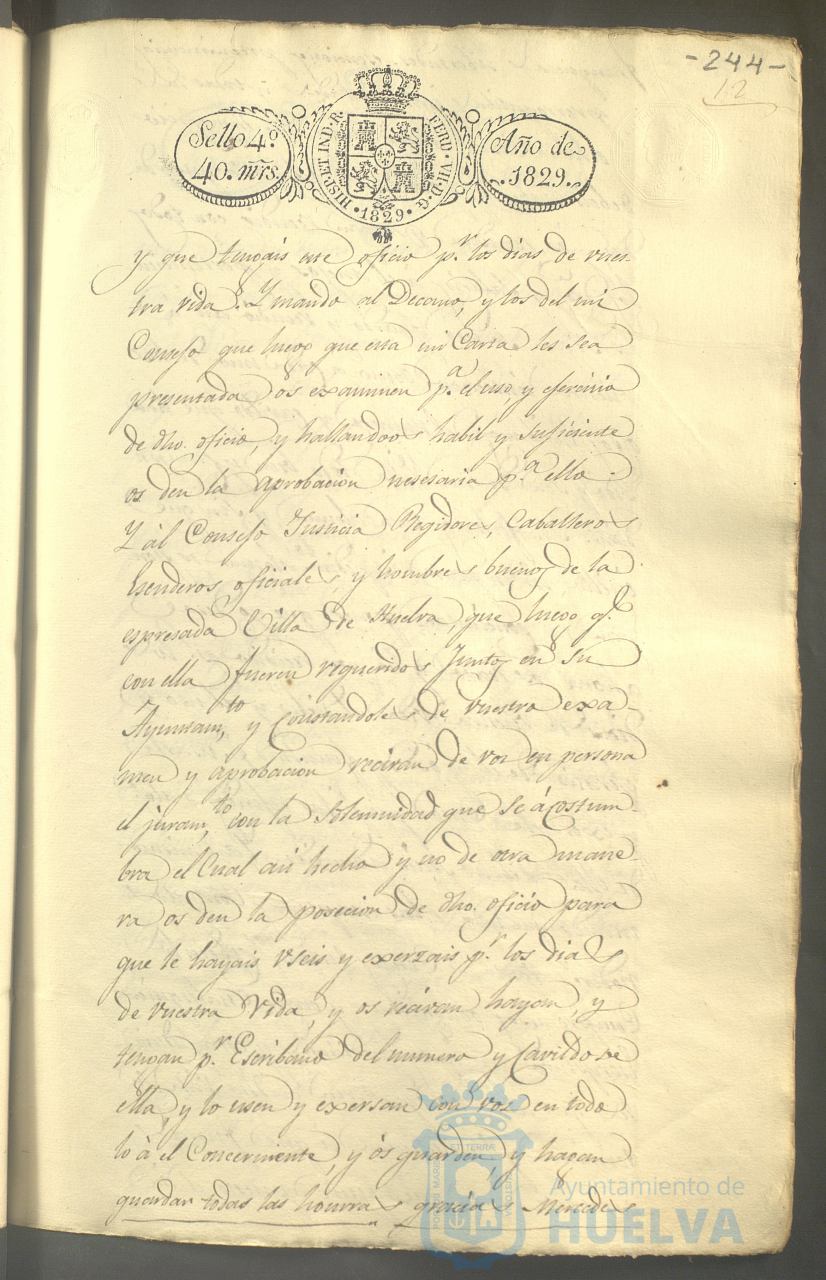 -244-
12
Sello 4º
40. mrs.
HISP. ET IND. R. FERD. VII. D. G.
·1829·
Año de
.1829.
y que tengais este oficio p.r los dias de vues-
tra vida. Y mando al Decano, y los del mi
Consejo que luego que esta mi Carta les sea
presentada os examinen p.a el uso, y ejercicio
de dho. oficio, y hallandoos habil y suficiente
os den la aprobacion nesesaria p.a ello.
Y al Consejo Justicia Regidores, Caballeros
Escuderos oficiales, y hombres buenos de la
espresada Villa de Huelva, que luego q.e
con ella fueren requeridos Juntos en su
Ayuntam.to y constandoles de vuestro exa-
men y aprobacion recivan de vos en persona
el juram.to con la solemnidad que se acostum-
bra el cual asi hecho y no de otra mane-
ra os den la posecion de dho. oficio para
que le hayais useis y exerzais p.r los dias
de vuestra Vida, y os recivan hayan, y
tengan p.r Escribano del numero y Cavildo de
ella, y lo usen y exersan con vos en todo
lo à el Concerniente, y os guarden y hagan
guardar todas las honrras gracias Mercedes
Ayuntamiento de
HUELVA